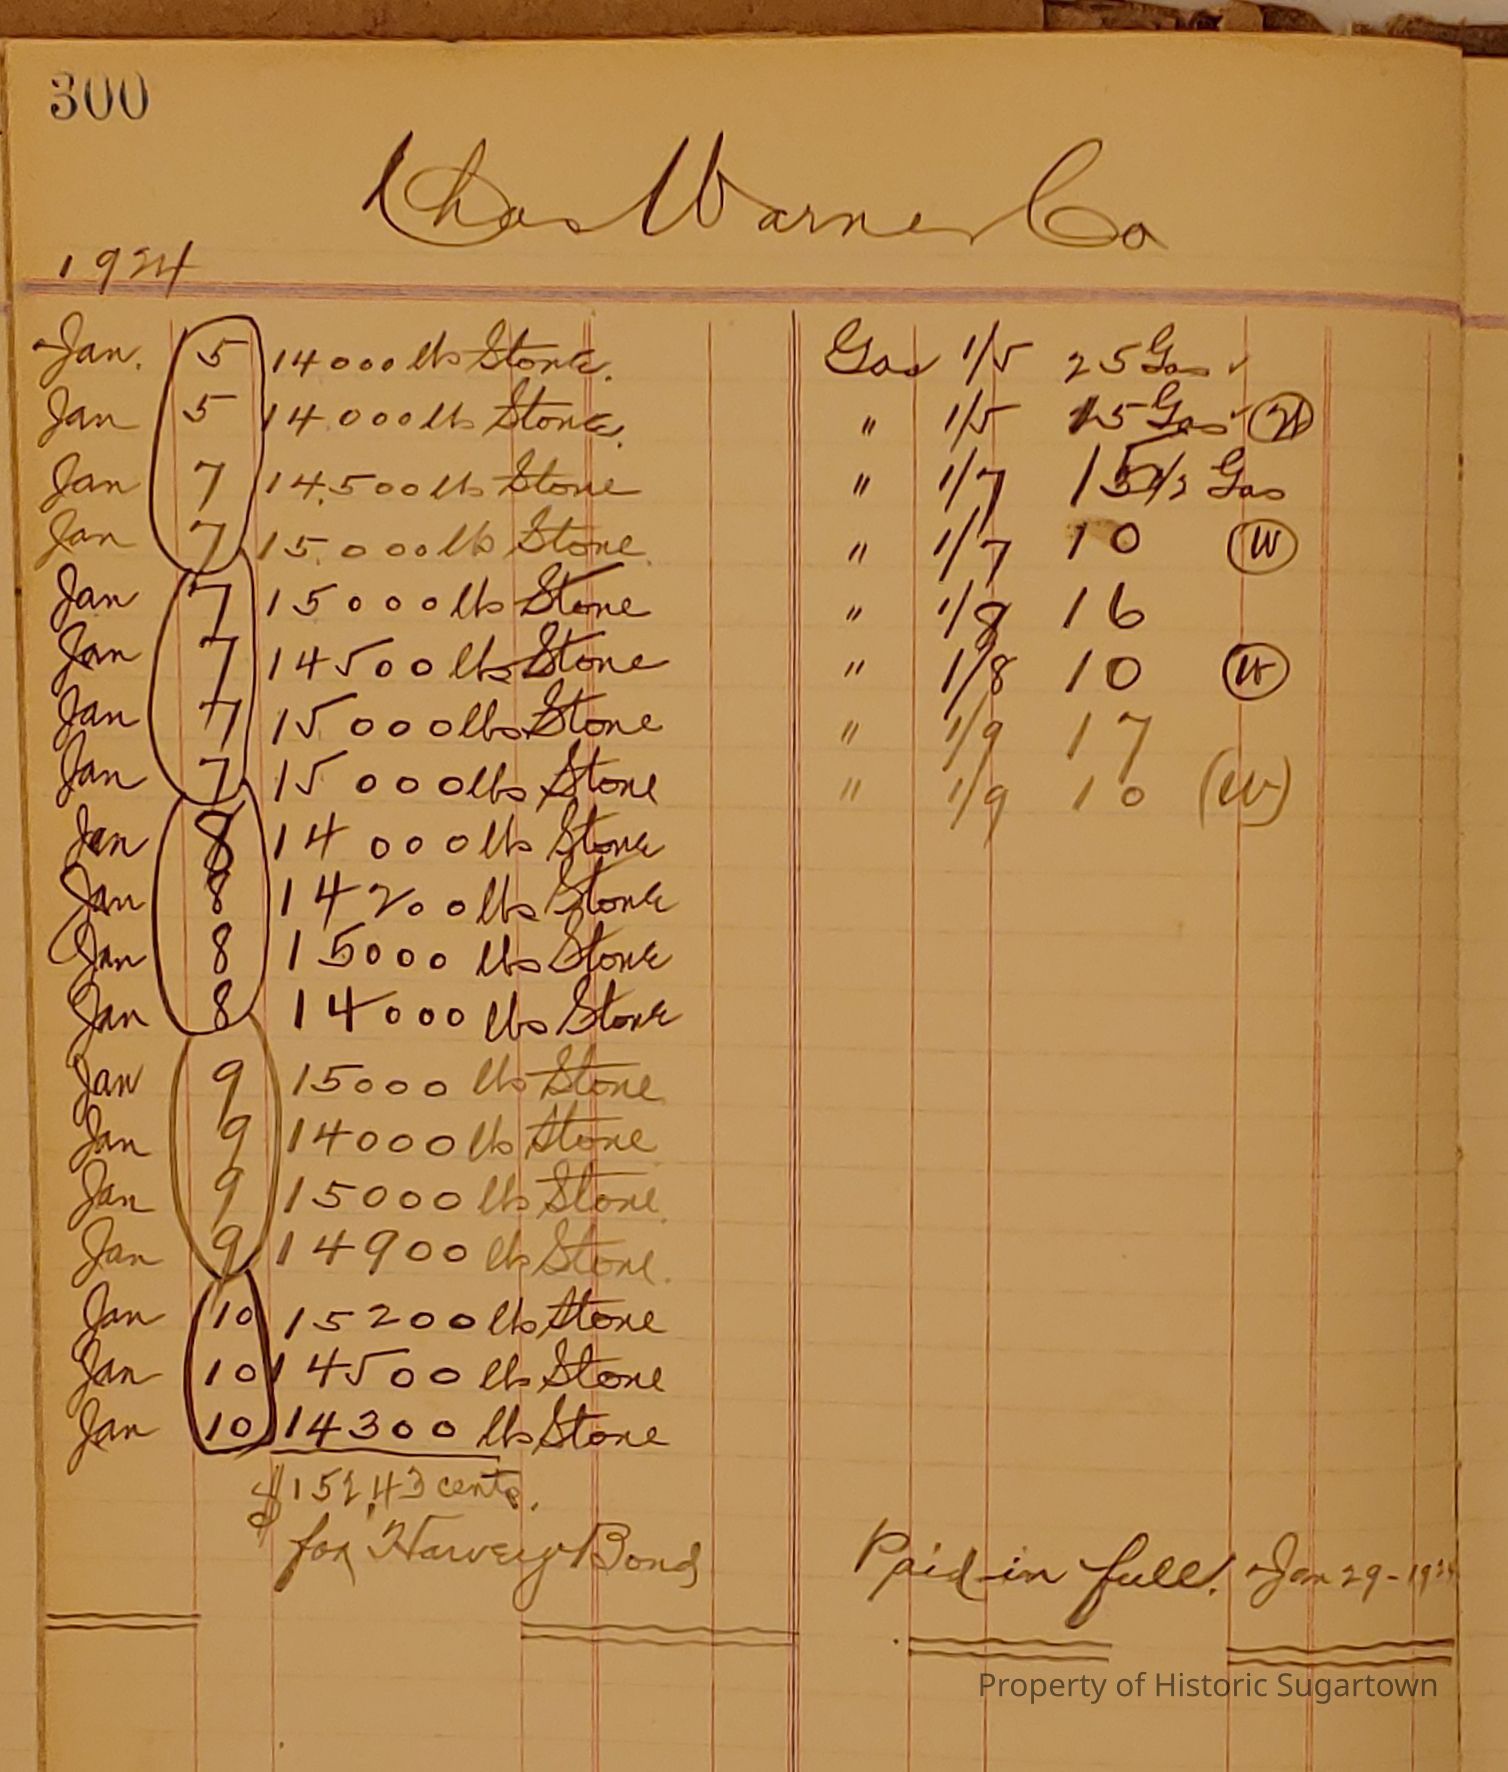 300
Chas Warner Co
1924
Jan. 5 14000 lbs Stone.
Jan 5 14000 lbs Stone.
Jan 7 14,500 lbs Stone
Jan 7 15,000 lbs Stone
Jan 7 15000 lbs Stone
Jan 7 14500 lbs Stone
Jan 7 15000 lbs Stone
Jan 7 15000 lbs Stone
Jan 8 14000 lbs Stone
Jan 8 14200 lbs Stone
Jan 8 15000 lbs Stone
Jan 8 14000 lbs Stone
Jan 9 15000 lbs Stone
Jan 9 14000 lbs Stone
Jan 9 15000 lbs Stone.
Jan 9 14900 lbs Stone.
Jan 10 15200 lbs Stone
Jan 10 14500 lbs Stone
Jan 10 14300 lbs Stone
$152,43 cents.
for Harvey Bond
Gas 1/5 25 Gas ✓
" 1/5 15 Gas ✓ W
" 1/7 15 1/2 Gas
" 1/7 10 W
" 1/8 16
" 1/8 10 W
" 1/9 17
" 1/9 10 (W)
Paid in full. Jan 29-1924
Property of Historic Sugartown